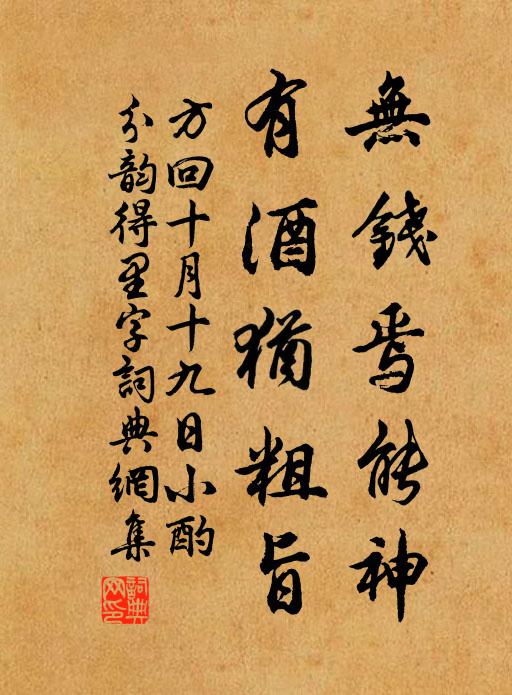 無錢焉能神
有酒猶粗旨
方回十月十九日小酌
分韵得里字詞典網集
詞典網印